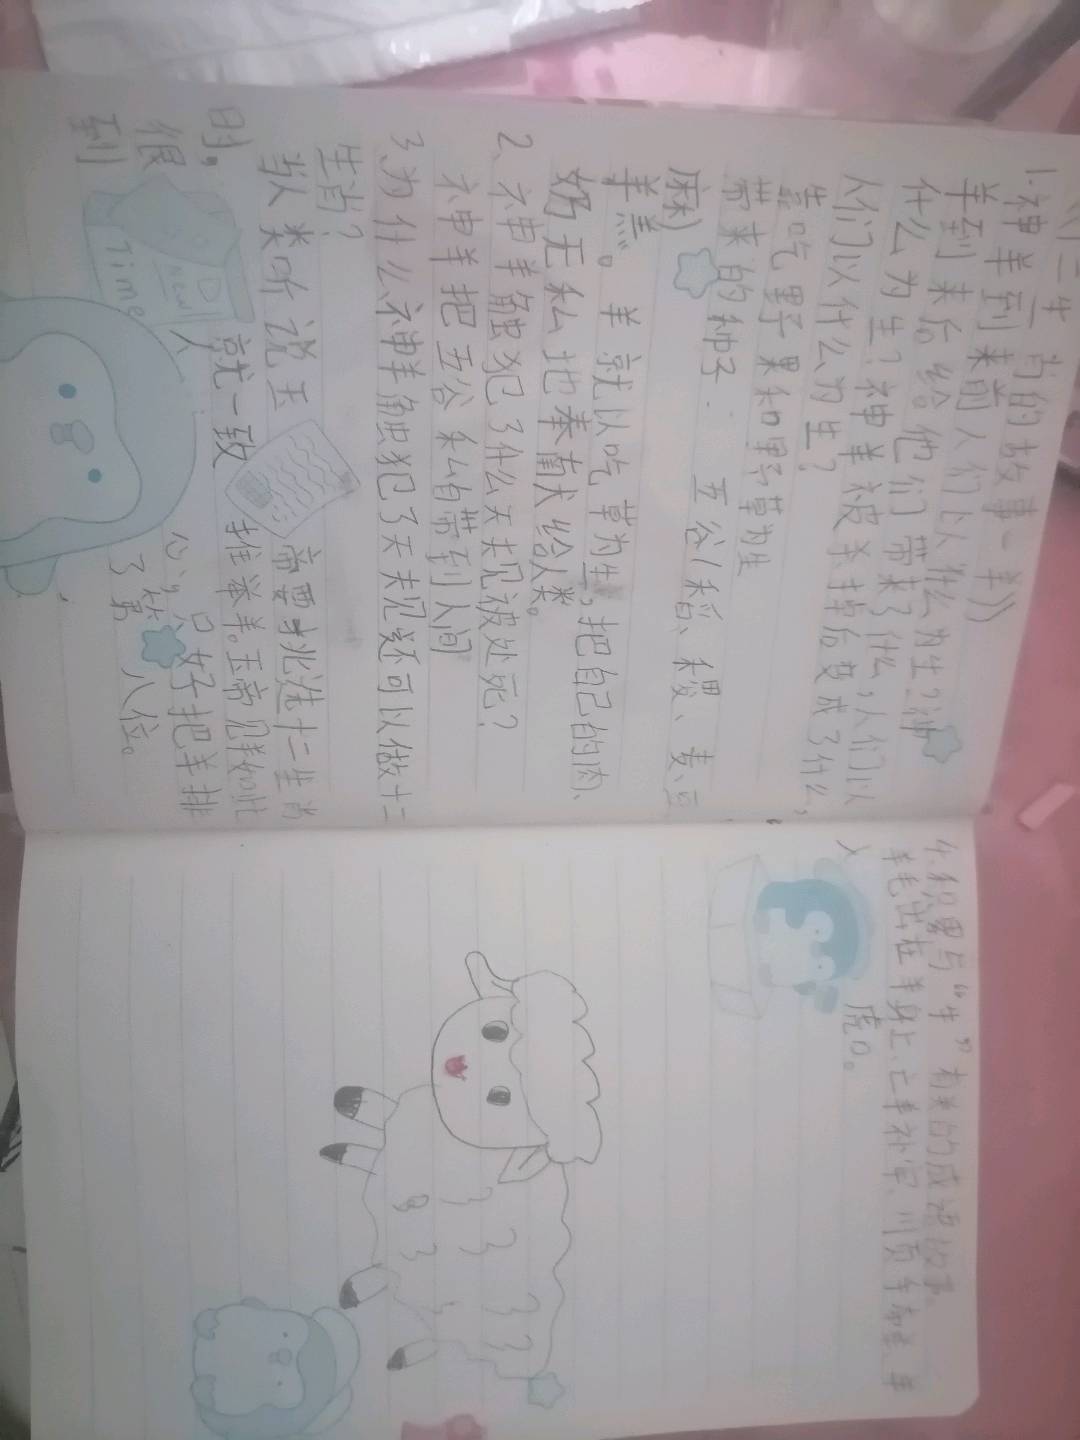 《十二生肖的故事一羊》
1.神羊到来前人们以什么为生？神
羊到来后给他们带来了什么，人们以
什么为生？神羊被杀掉后变成了什么，
人们以什么为生？
靠吃野果和野草为生
带来的种子：五谷（稻、稷、麦、豆
麻）
羊羔。羊就以吃草为生，把自己的肉、
奶无私地奉献给人类。
2、神羊触犯了什么天规被处死？
神羊把五谷私自带到人间
3、为什么神羊触犯了天规还可以做十二
生肖？
当人类听说玉帝要挑选十二生肖
时，就一致推举羊。玉帝见羊如此
很人心，只好把羊排
到了第八位。
Time
New
4.积累与“牛”有关的成语故事。
羊毛出在羊身上、亡羊补牢、川页手牵羊、羊
入虎口。